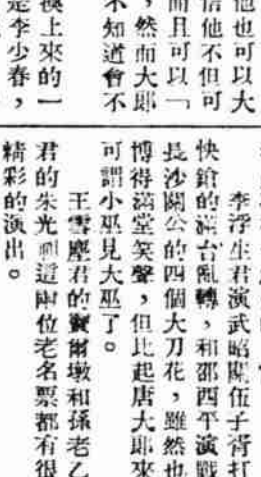 他也可以大
信他不但可
而且可以「
，然而大郎
不知道會不
漢上來的一
是李少春，
李浮生君演武昭關伍子胥打
快鎗的滿台亂轉，和邵西平演戰
長沙關公的四個大刀花，雖然也
博得滿堂笑聲，但比起唐大郎來
可謂小巫見大巫了。
王雪塵君的竇爾墩和孫老乙
君的朱光祖這兩位老名票都有很
精彩的演出。